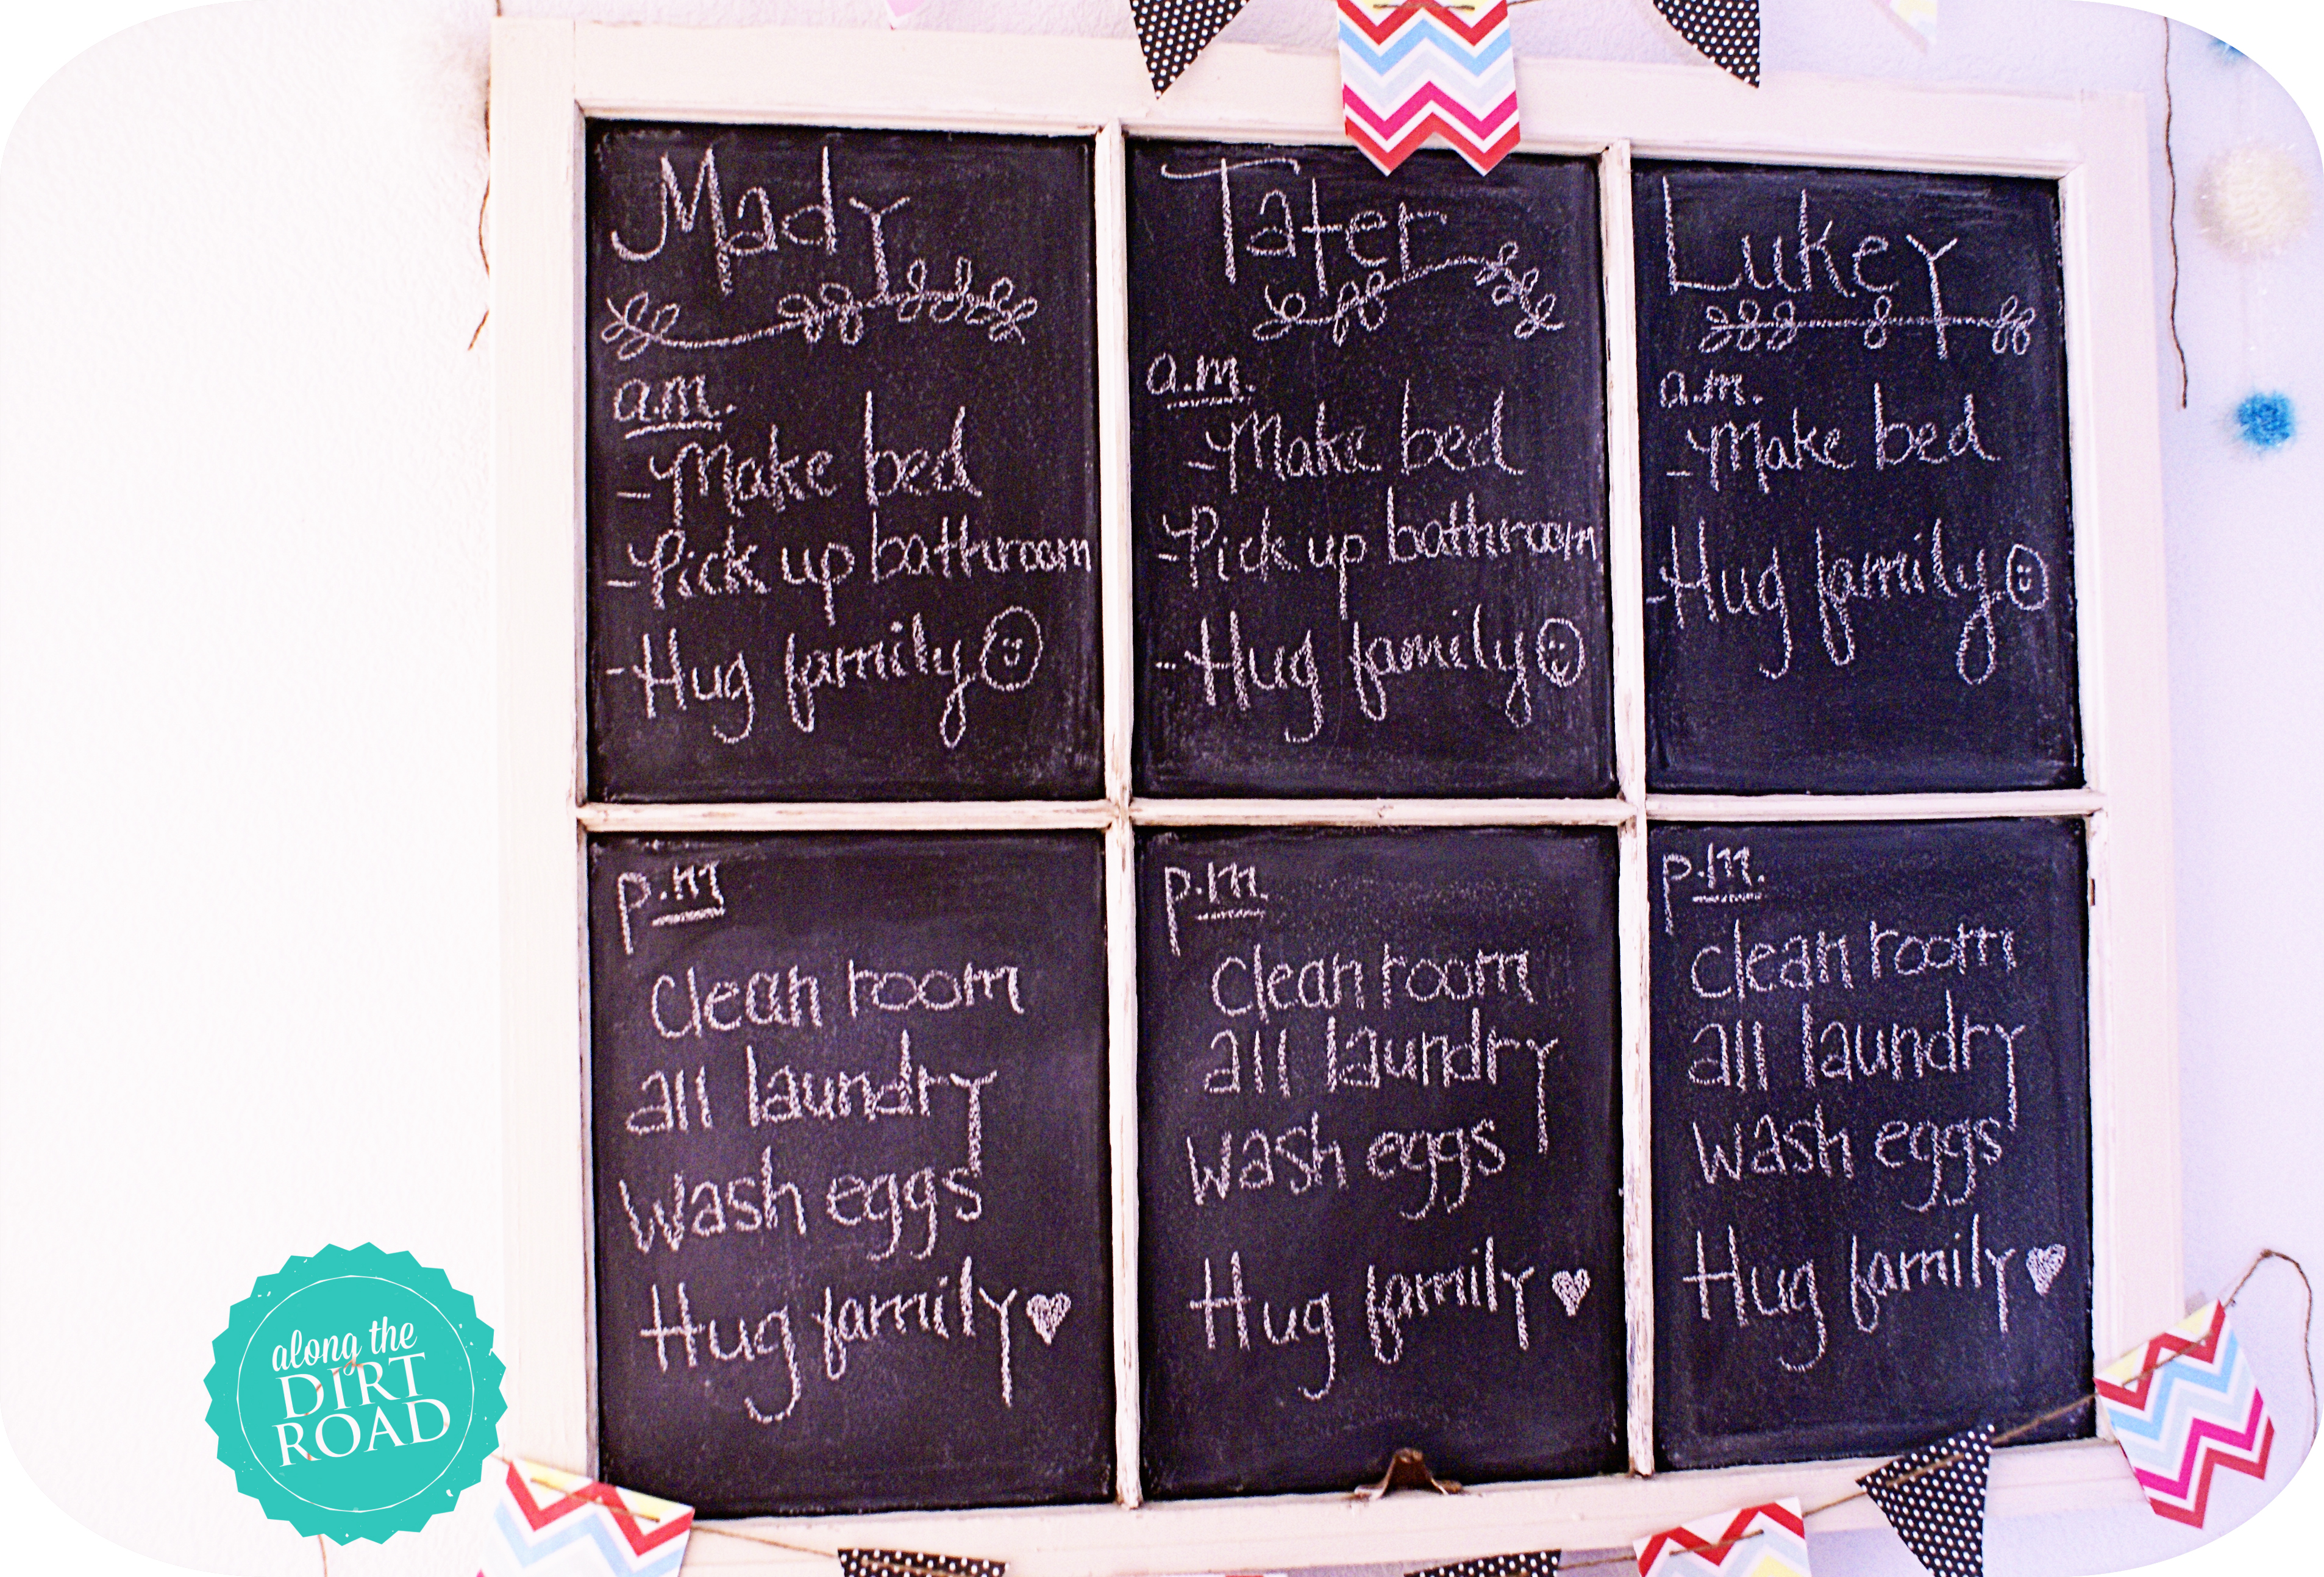 Mady
a.m.
-Make bed
-Pick up bathroom
-Hug family
Tater
a.m.
-Make bed
-Pick up bathroom
-Hug family
Lukey
a.m.
-Make bed
-Hug family
p.m
Clean room
all laundry
wash eggs
Hug family
p.m
Clean room
all laundry
wash eggs
Hug family
p.m.
Clean room
all laundry
wash eggs
Hug family
along the
DIRT
ROAD